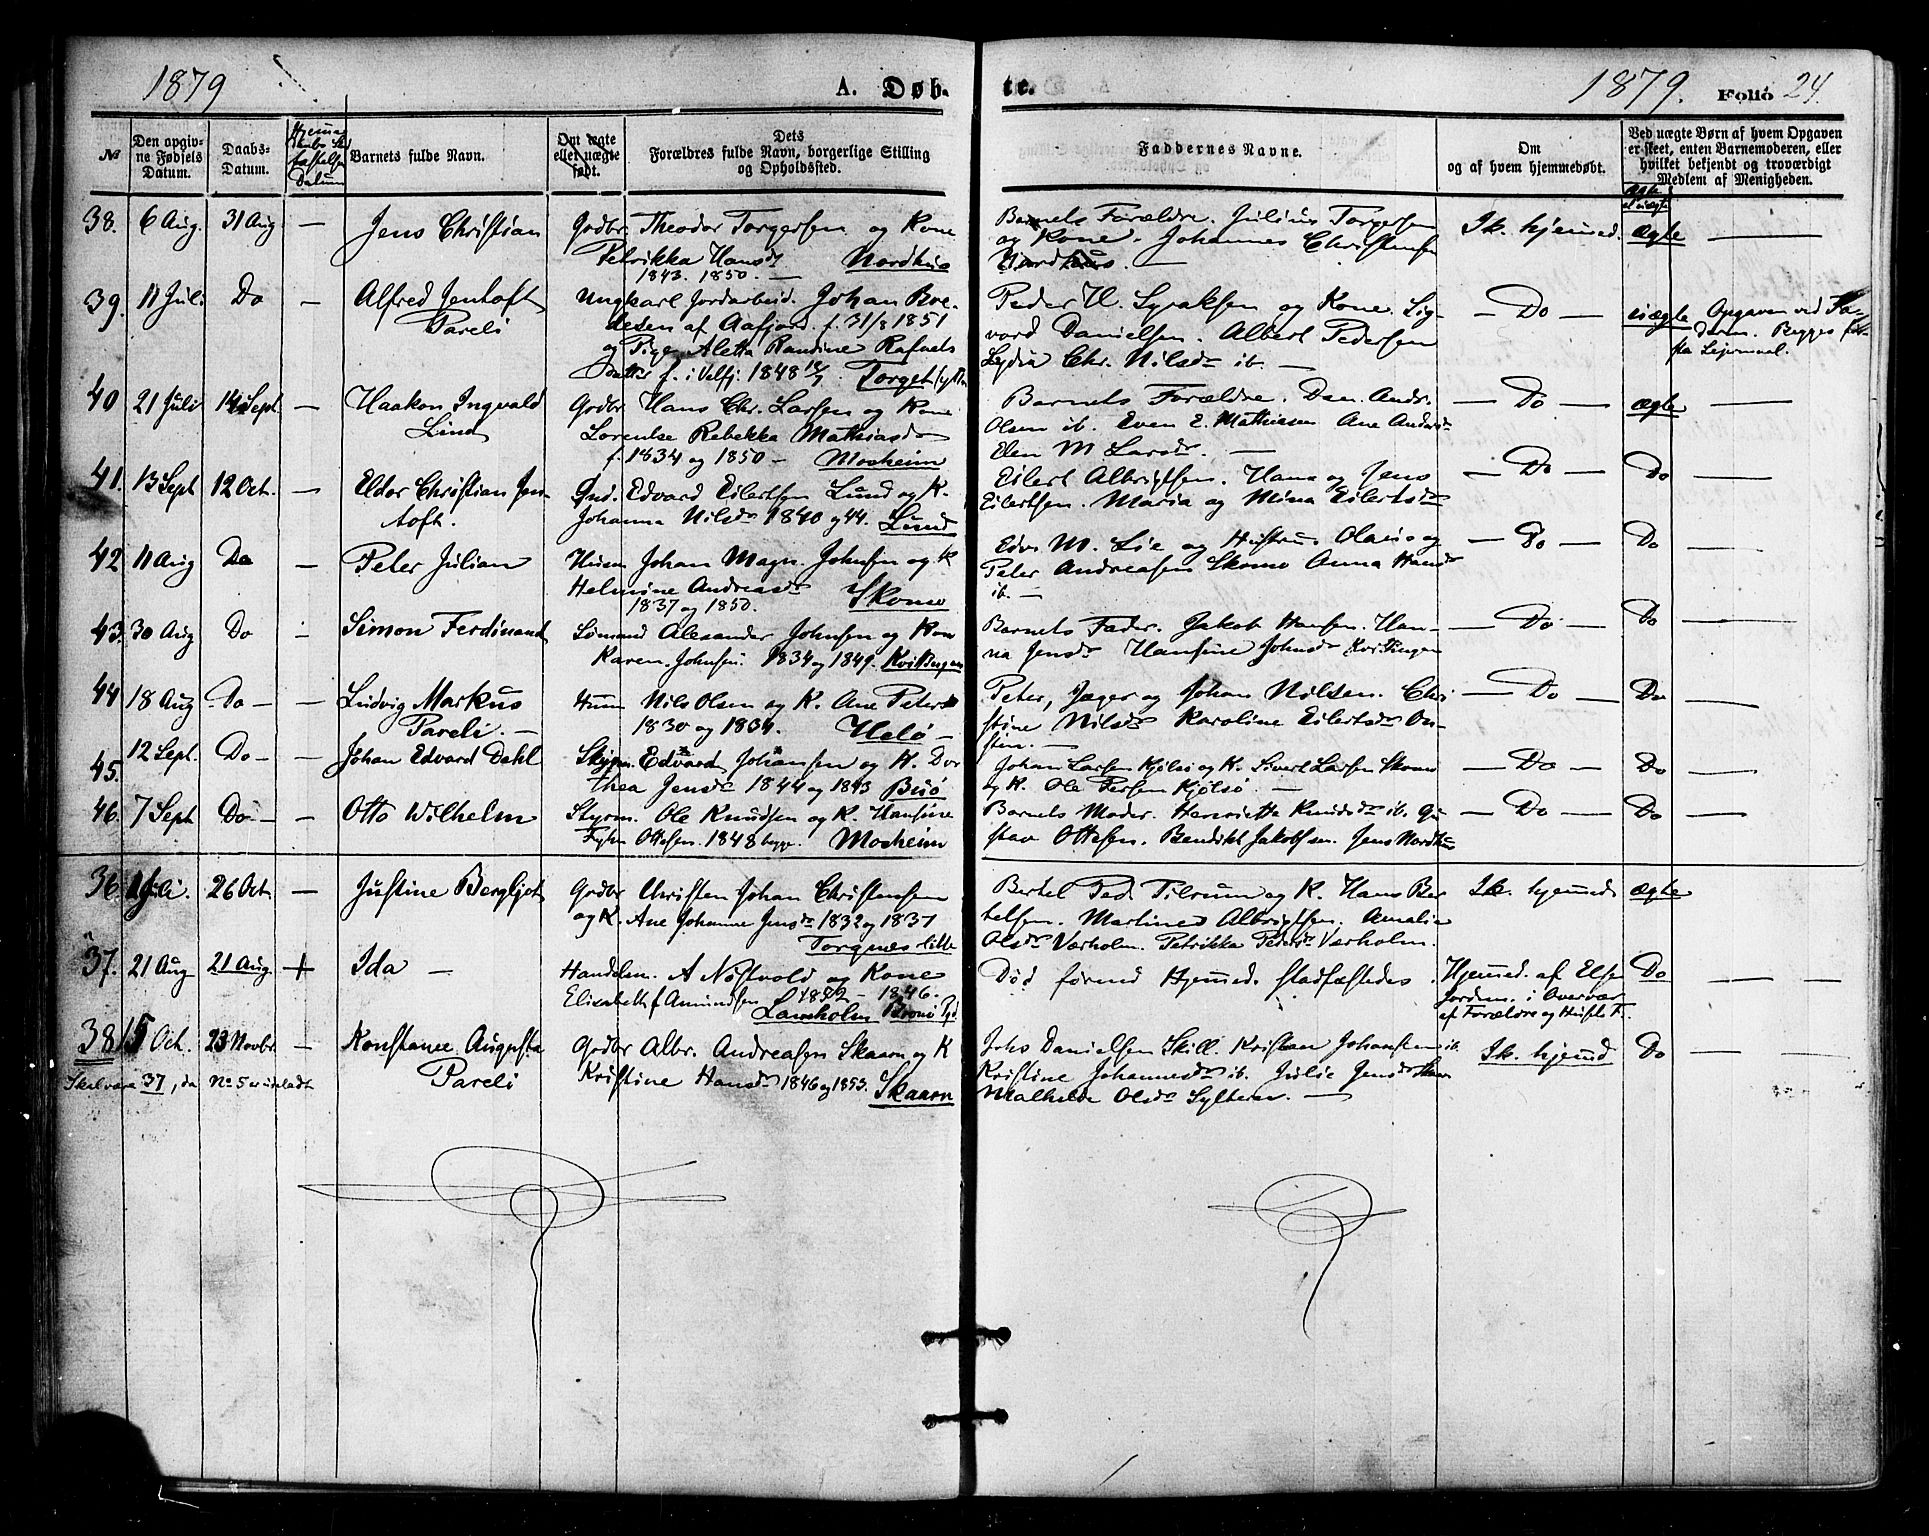 1879
A. Døb-
te.
1879.
Folio 24.
№
Den opgiv-
ne Fødsels
Datum.
Daabs-
Datum.
Datum
Barnets fulde Navn.
Om ægte
eller uægte
født.
Dets
Forældres fulde Navn, borgerlige Stilling
og Opholdssted.
Faddernes Navne.
Om
og af hvem hjemmedøbt.
Ved uægte Børn af hvem Opgaven
er skeet, enten Barnemoderen, eller
hvilket bekjendt og troværdigt
Medlem af Menigheden.
38. 6 Aug. 31 Aug — Jens Christian Grdbr. Theodor Torgersen og Kone
Petrikka Hansd. Nordhus
1843. 1850. —
Barnets Forældre. Julius Torgersen
og Kone. Johannes Christensen
Nordhus. —
Sk. hjemmed. ægte —
39. 11 Juli Do — Alfred Jentoft
Pareli
Ungkarl Jordarbeid. Johan
af Aafjord. f. 31/8 1851
og Pige Aletta Randine Rafaels
datter f. i Velfj. 1848 Torget
Peder H. Syraksen og Kone. Sig-
vard Danielsen. Albert Pedersen
Lydia Chr. Nilsdr ib. —
— Do — uægte Opgaven ved Fa-
deren. Begges før-
ste Leiermaal.
40 21 Juli 14 Sept. — Haakon Ingvald
Lind
Grdbr. Hans Chr. Larsen og Kone
Lorentse Rebekka Mathiasdr
f. 1834 og 1850 — Mosheim
Barnets Forældre. Dan. Andr.
Olsen ib. Even E. Mathiesen Ane Andersdr
Elen M Larsdr. —
— Do — ægte —
41. 13 Sept 12 Oct. — Eldor Christian Jen-
toft.
Gmd. Edvard Eilertsen Lund og K.
Johanna Nilsdr 1840 og 44. Lund
Eilert Albrigtsen. Hans og Jens
Eilertsen. Maria og Mina Eilertsdr
— Do — Do —
42 11 Aug Do — Peter Julian
Husm Johan Magn. Johnsen og K
Helmine Andreasdr
1837 og 1850. Skomo
Edv. M. Lie og Hustru Olava og
Peter Andreasen Skomo Anna Hansdr
ib. —
— Do — Do —
43. 30 Aug Do — Simon Ferdinand
Sømand Alexander Johnsen og Kone
Karen Johnsen. 1834 og 1849.
Barnets Fader. Jakob Hansen. Han-
na Jensdr Hansine Johnsdr
— Do — Do —
44 18 Aug Do — Ludvig Markus
Pareli. —
Husm Nils Olsen og K. Ane Petersdr
1830 og 1834. Helø —
Peter, Jæger og Johan Nilsen. Chri-
stine Nilsdr Karoline Eilertsdr
— Do — Do —
45. 12 Sept. Do — Johan Edvard Dahl
Edvard Johansen og K. Dor
thea Jensdr 1844 og 1843 Buø
Johan Larsen Kjølsø og K. Sivert Larsen Skomo
og K. Ole Persen Kjølsø —
— Do — Do —
46. 7 Sept Do — Otto Wilhelm
Styrm. Ole Knudsen og K. Hansine
Ottesen. 1848 begge. Mosheim
Barnets Moder. Henriette Knudsdr ib. Gu
stav Ottesen. Bendikt Jakobsen. Jens Nordhus
— Do — Do —
36. Juli. 26 Oct — Justine Bergljot
Grdbr Christen Johan Christensen
og K. Ane Johanne Jensdr 1832 og 1837
Torgnes lille
Bertel Ped. Tilrum og K. Hans Ber
telsen. Martines Albrigtsen. Amalie
Olsdr Værholm. Petrikka Pedersdr Værholm.
Sk. hjemmed. ægte
37. 21 Aug 21 Aug + Ida —
Handelsm. A Nøstvold og Kone
Elisabeth f. Amundsen 1852 — 1846.
Lamholm Brønø Pgd
Død førend Hjemmed. stadfæstedes
Hjemmed. af
Jordem. i Overvær
af Forældre
Do — —
38 15 Oct. 23 Novbr. — Konstance Augusta
Pareli
Grdbr Albr. Andreasen Skaarn og K
Kristine Hansdr 1846 og 1853. Skaarn
Johs Danielsen Skill. Kristian Johansen ib.
Kristine Johannesdr ib. Julie Jensdr Skaarn
Mathilde Olsdr Sylteren. —
Sk. hjemmed Do — —
Skal være 37, da No 5 er udeladt